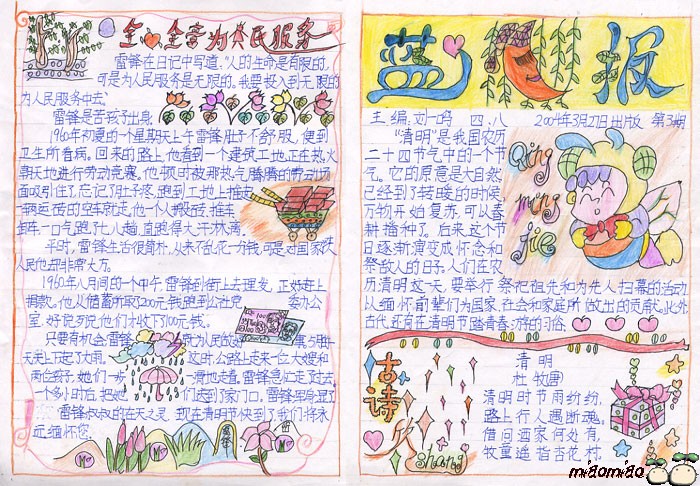 全心全意为人民服务
雷锋在日记中写道:"人的生命是有限的,
可是为人民服务是无限的。我要投入到无限的
为人民服务中去。"
雷锋是苦孩子出身
1960年初夏的一个星期天上午雷锋肚子不舒服,便到
卫生所看病。回来的路上,他看到一个建筑工地正在热火
朝天地进行劳动竞赛。他顿时被那热气腾腾的劳动场
面吸引住了,忘记了肚子疼,跑到工地上推起
一辆运砖的空车就走,他一个人搬砖、推车
一口气跑了七八趟,直跑得大汗淋漓
平时,雷锋生活很简朴,从来不乱花一分钱,可是对国家
人民他却非常大方。
1960年八月间的一个中午,雷锋到街上去理发,正好赶上
捐款。他从储蓄所取200元钱跑到公社党 委办公
室,好说歹说他们才收下了100元钱。
只要有机会雷锋 就为人民做好
天天上下起了大雨。 这时,公路上走来一位大嫂和
两位孩子,她们一步一滑地走着,雷锋急忙走了过去
一个多小时后,把她们送到了家门口,雷锋军身湿了
雷锋叔叔的在天之灵,现在清明节快到了我们将永
远缅怀您。
雷锋
蓝月报
主编:刘一鸣 四、八 2009年3月27日出版 第3期
"清明"是我国农历
二十四节气中的一个节
气。它的原意是大自然
已经到了转暖的时候,
万物开始复苏,可以春
耕播种了。后来,这个节
日逐渐演变成怀念和
祭敌人的日子。人们在农
历清明这一天,要举行祭祀祖先和为先人扫墓的活动
以缅怀前辈们为国家、社会和家庭所做出的贡献。此外
古代,还有在清明节踏青春游的习俗。
Qing
ming
jie
古诗欣
shang
清明
杜牧
清明时节雨纷纷,
路上行人遇断魂。
借问酒家何处有,
牧童遥指杏花村。
miaomiao